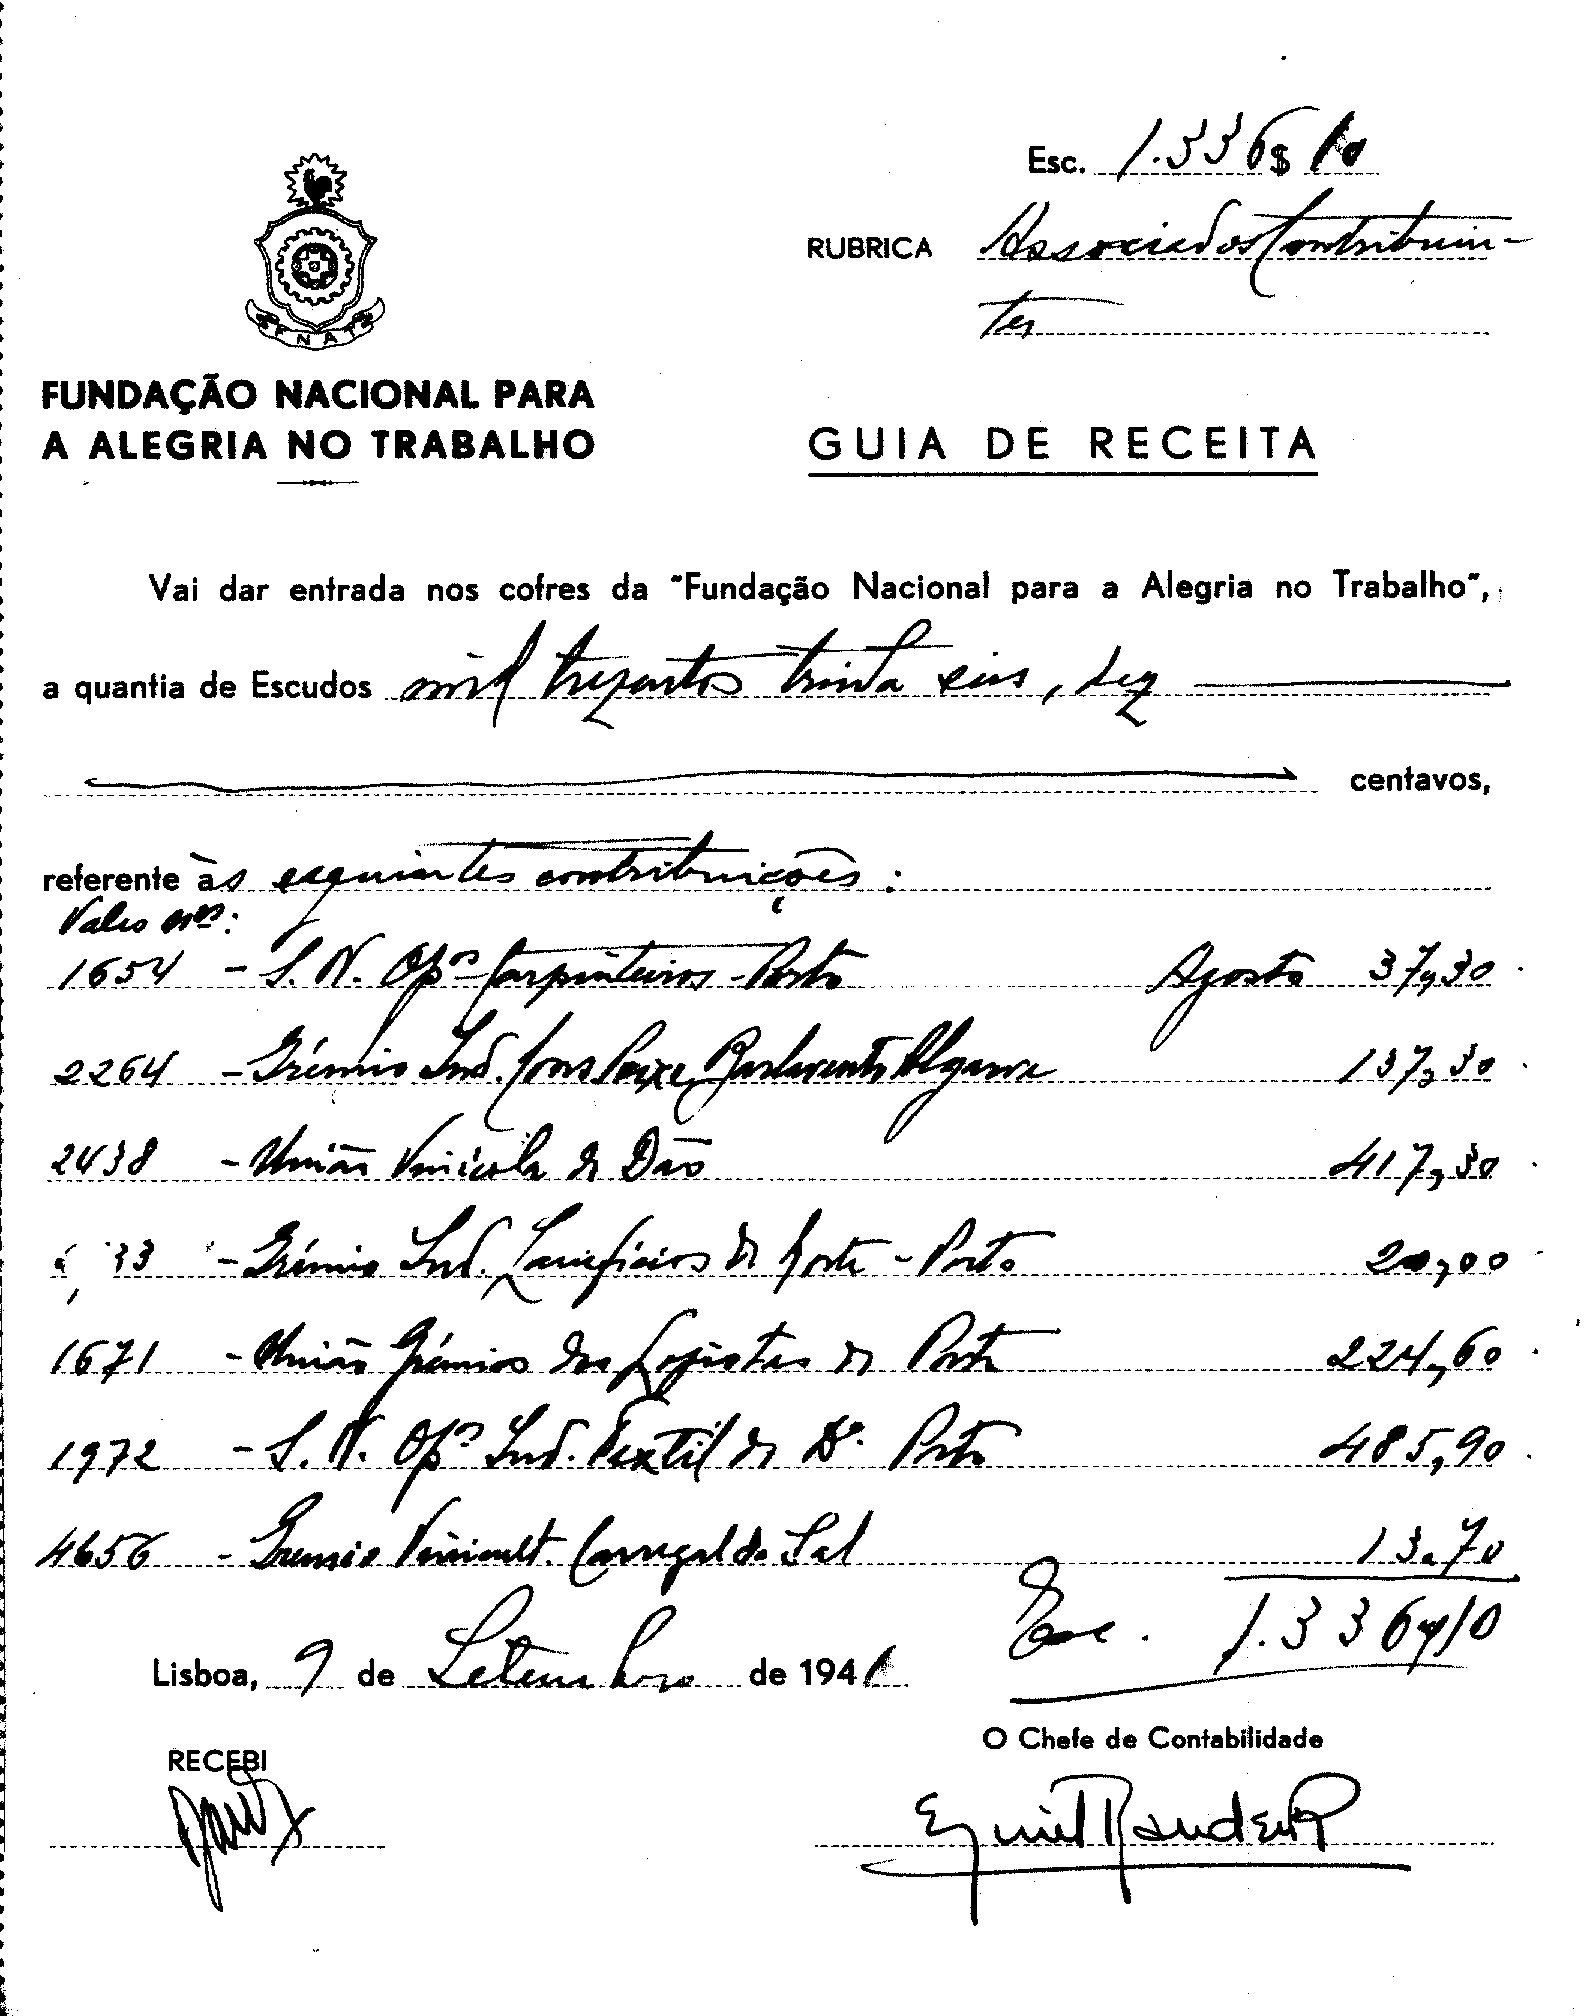 Esc. 1.336$10
RUBRICA Associados Contribuin-
tes
FNAT
FUNDAÇÃO NACIONAL PARA
A ALEGRIA NO TRABALHO
GUIA DE RECEITA
Vai dar entrada nos cofres da "Fundação Nacional para a Alegria no Trabalho",
a quantia de Escudos mil trezentos trinta seis, dez
centavos,
referente às seguintes contribuições:
Vales nos:
1654 - S. N. Opos Carpinteiros - Porto Agosto 37,30
2264 - Grémio Ind. Cons Peixe Barlavento Algarve 137,30
2438 - União Vinícola do Dão 417,30
33 - Grémio Ind. Lanifícios do Norte - Porto 20,00
1671 - União Grémios dos Lojistas do Porto 224,60
1972 - S. N. Opos Ind. Textil do Do. Porto 485,90
4656 - Gremio Vinicult. Carregal do Sal 13.70
Esc. 1.336$10
Lisboa, 9 de Setembro de 1941
O Chefe de Contabilidade
RECEBI